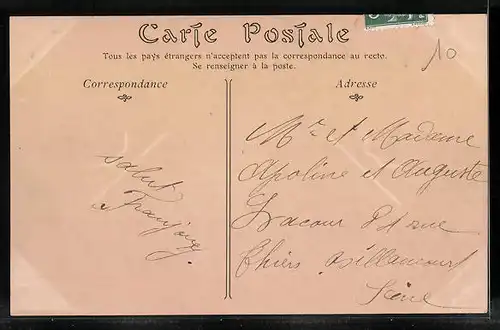 Carte Postale
Tous les pays étrangers n'acceptent pas la correspondance au recto.
Se renseigner à la poste.
Correspondance
Adresse
10
salut
Mr et Madame
Apoline et Auguste
rue
Thiers Billancourt
Seine